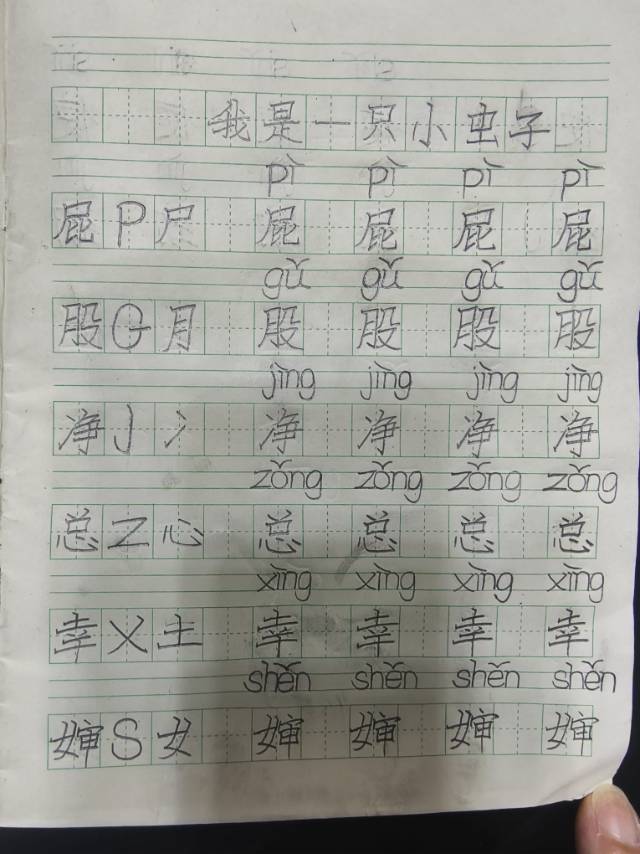 我是一只小虫子
pì pì pì pì
屁 P 尸 屁 屁 屁 屁
gǔ gǔ gǔ gǔ
股 G 月 股 股 股 股
jìng jìng jìng jìng
净 J 冫 净 净 净 净
zǒng zǒng zǒng zǒng
总 Z 心 总 总 总 总
xìng xìng xìng xìng
幸 X 土 幸 幸 幸 幸
shěn shěn shěn shěn
婶 S 女 婶 婶 婶 婶